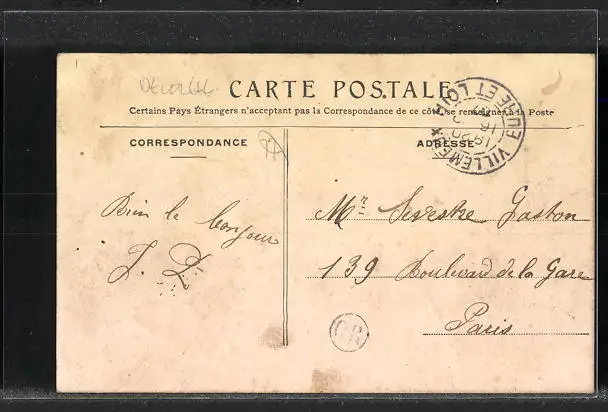 CARTE POSTALE
Certains Pays Étrangers n'acceptent pas la Correspondance de ce côté, se renseigner à la Poste
CORRESPONDANCE
ADRESSE
EURE ET LOIR
Bien le bonjour
J. D
Mr Sevestre Gaston
139 Boulevard de la Gare
Paris
OR